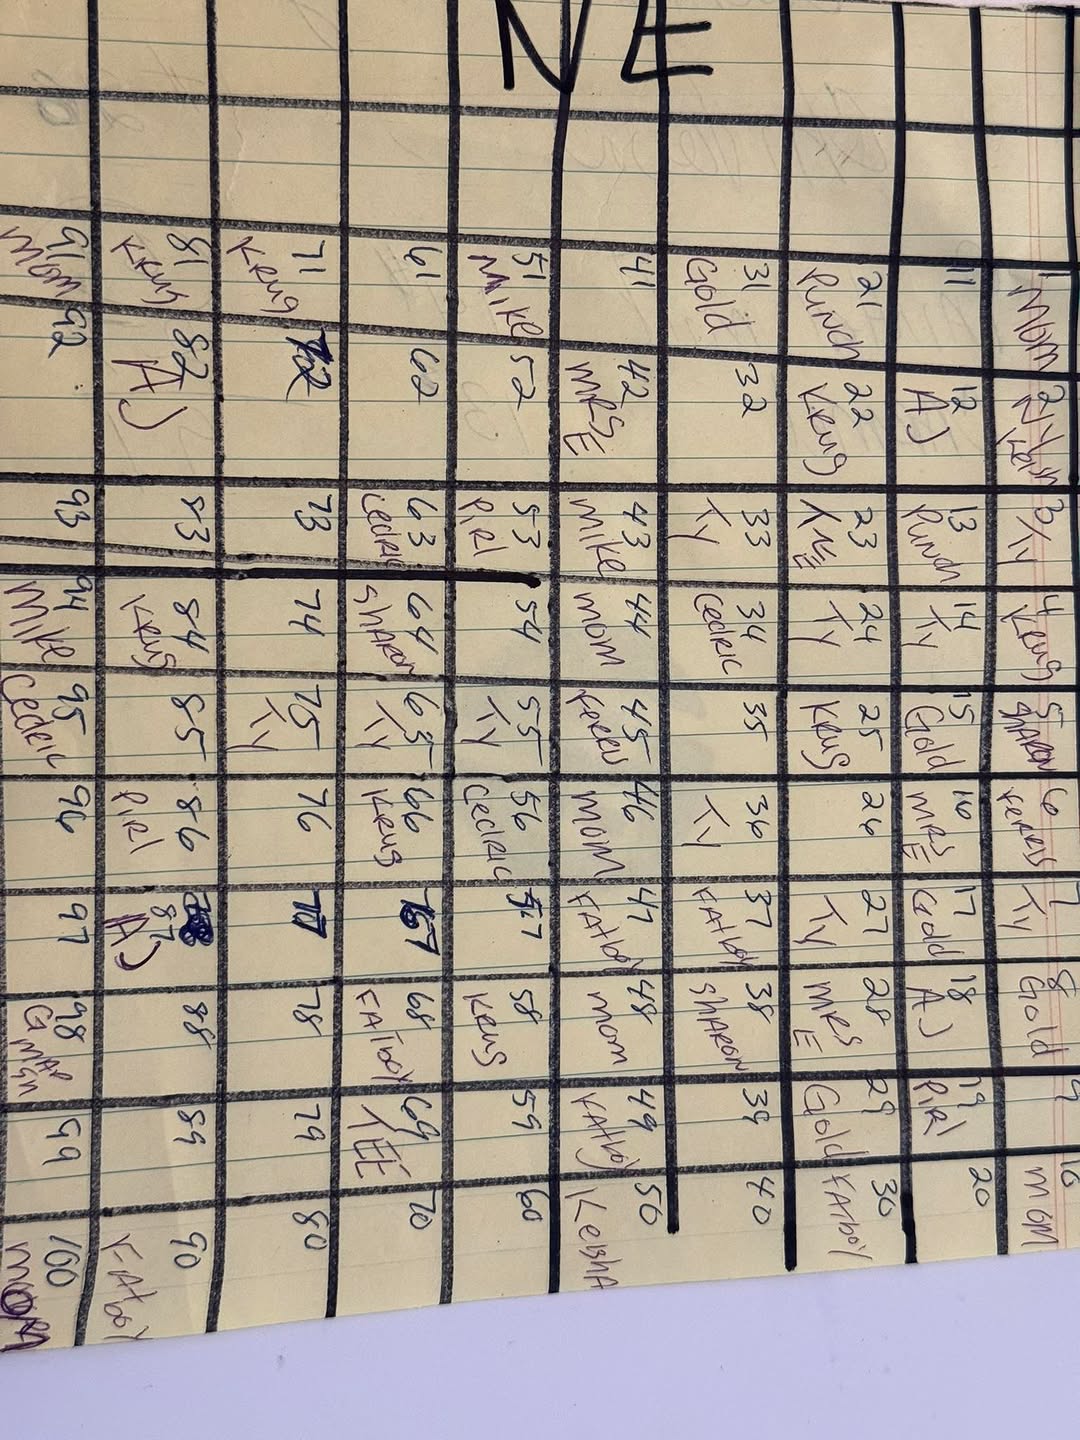 NE
1 2 3 4 5 6 7 8 9 10
Mom Ty Krug Sharon Ty Gold Mom
11 12 13 14 15 16 17 18 19 20
AJ Punch Ty Gold MRS E Gold AJ PiRl
21 22 23 24 25 26 27 28 29 30
Punch Krug Ty Krug Ty MRS E Gold FAtboy
31 32 33 34 35 36 37 38 39 40
Gold Ty Cedric Ty FAtboy SHARON
41 42 43 44 45 46 47 48 49 50
MRS E Mike mom mom FAtboy mom FAtboy KeishA
51 52 53 54 55 56 57 58 59 60
Mike PiRl Ty Cedric Krug
61 62 63 64 65 66 67 68 69 70
Cedric SHARON Ty Krug FAtboy
71 72 73 74 75 76 77 78 79 80
Krug Ty
81 82 83 84 85 86 87 88 89 90
Krug AJ Krug PiRl AJ FAtboy
91 92 93 94 95 96 97 98 99 100
Mom Mike Cedric Mom